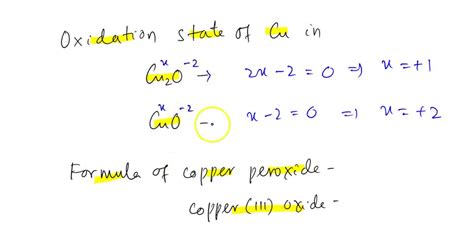 Oxidation state of Cu in
Cu₂O → 2x - 2 = 0 ⇒ x = +1
x -2
CuO → x - 2 = 0 ⇒ x = +2
x -2
Formula of copper peroxide -
copper (III) oxide -